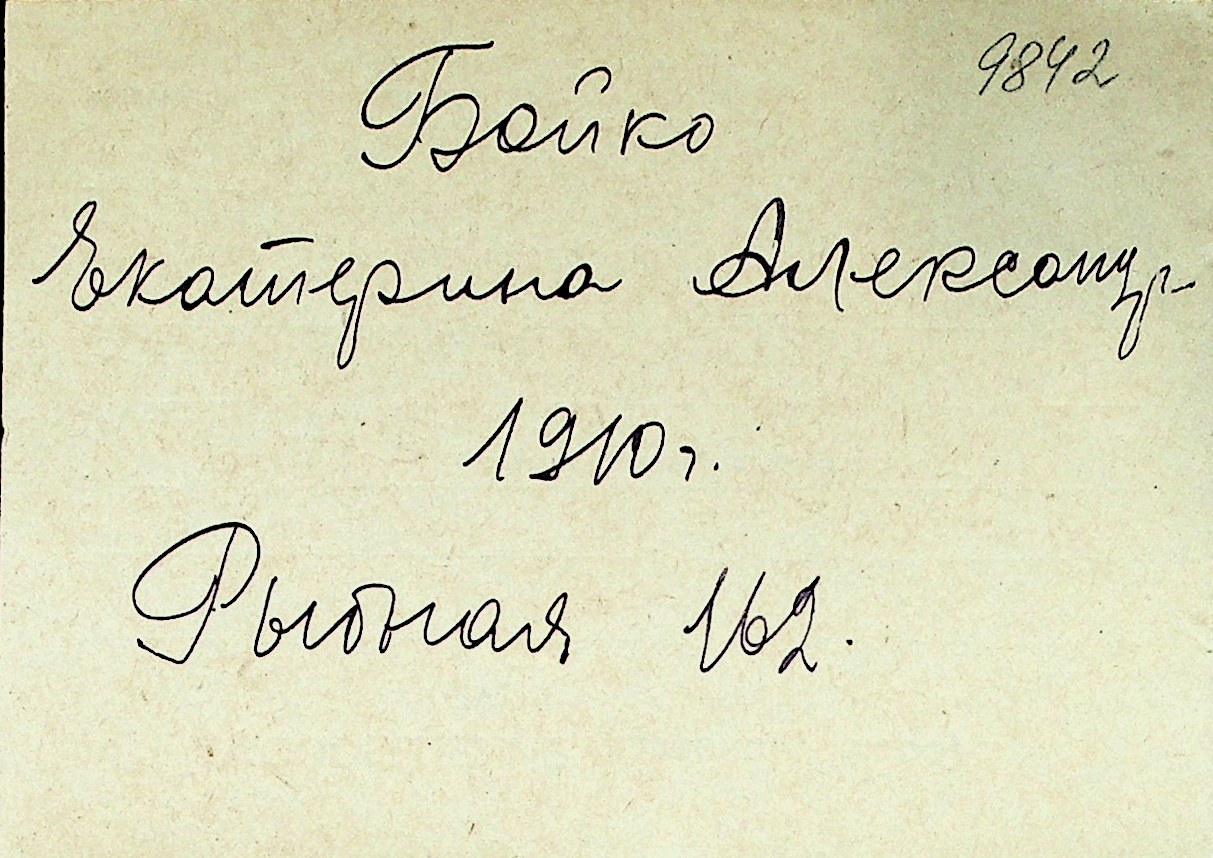 9842
Бойко
Екатерина Александр-
1910г.
Рыбная 162.